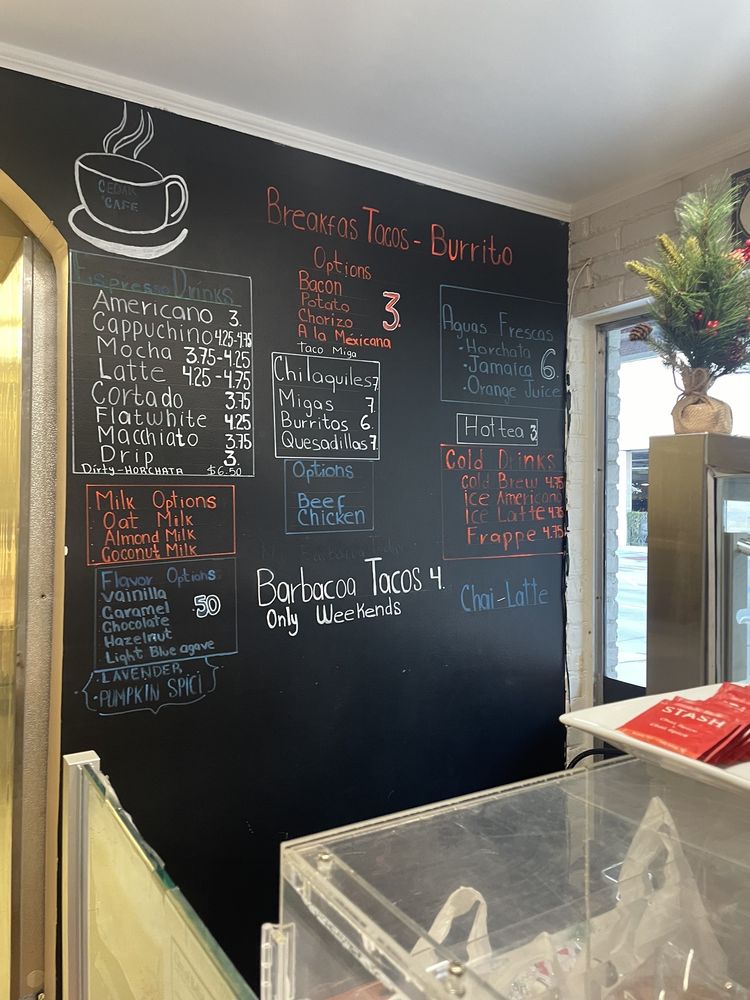 CEDAR
CAFE
Breakfas Tacos - Burrito
Espresso Drinks
Americano 3.
Cappuchino 4.25-4.75
Mocha 3.75-4.25
Latte 4.25-4.75
Cortado 3.75
Flatwhite 4.25
Macchiato 3.75
Drip 3.
Dirty-HORCHATA $6.50
Milk Options
Oat Milk
Almond Milk
Coconut Milk
Flavor Options
vainilla
Caramel
Chocolate .50
Hazelnut
Light Blue agave
·LAVENDER,
·PUMPKIN SPICI
Options
Bacon
Potato 3.
Chorizo
A la Mexicana
Taco Miga
Chilaquiles 7
Migas 7.
Burritos 6.
Quesadillas 7.
Options
Beef
Chicken
Barbacoa Tacos 4.
Only Weekends
Aguas Frescas
·Horchata
·Jamaica 6.
·Orange Juice
Hot tea 3.
Cold Drinks
cold Brew 4.75
ice Americano
Ice Latte 4.75
Frappe 4.75
Chai-Latte
STASH